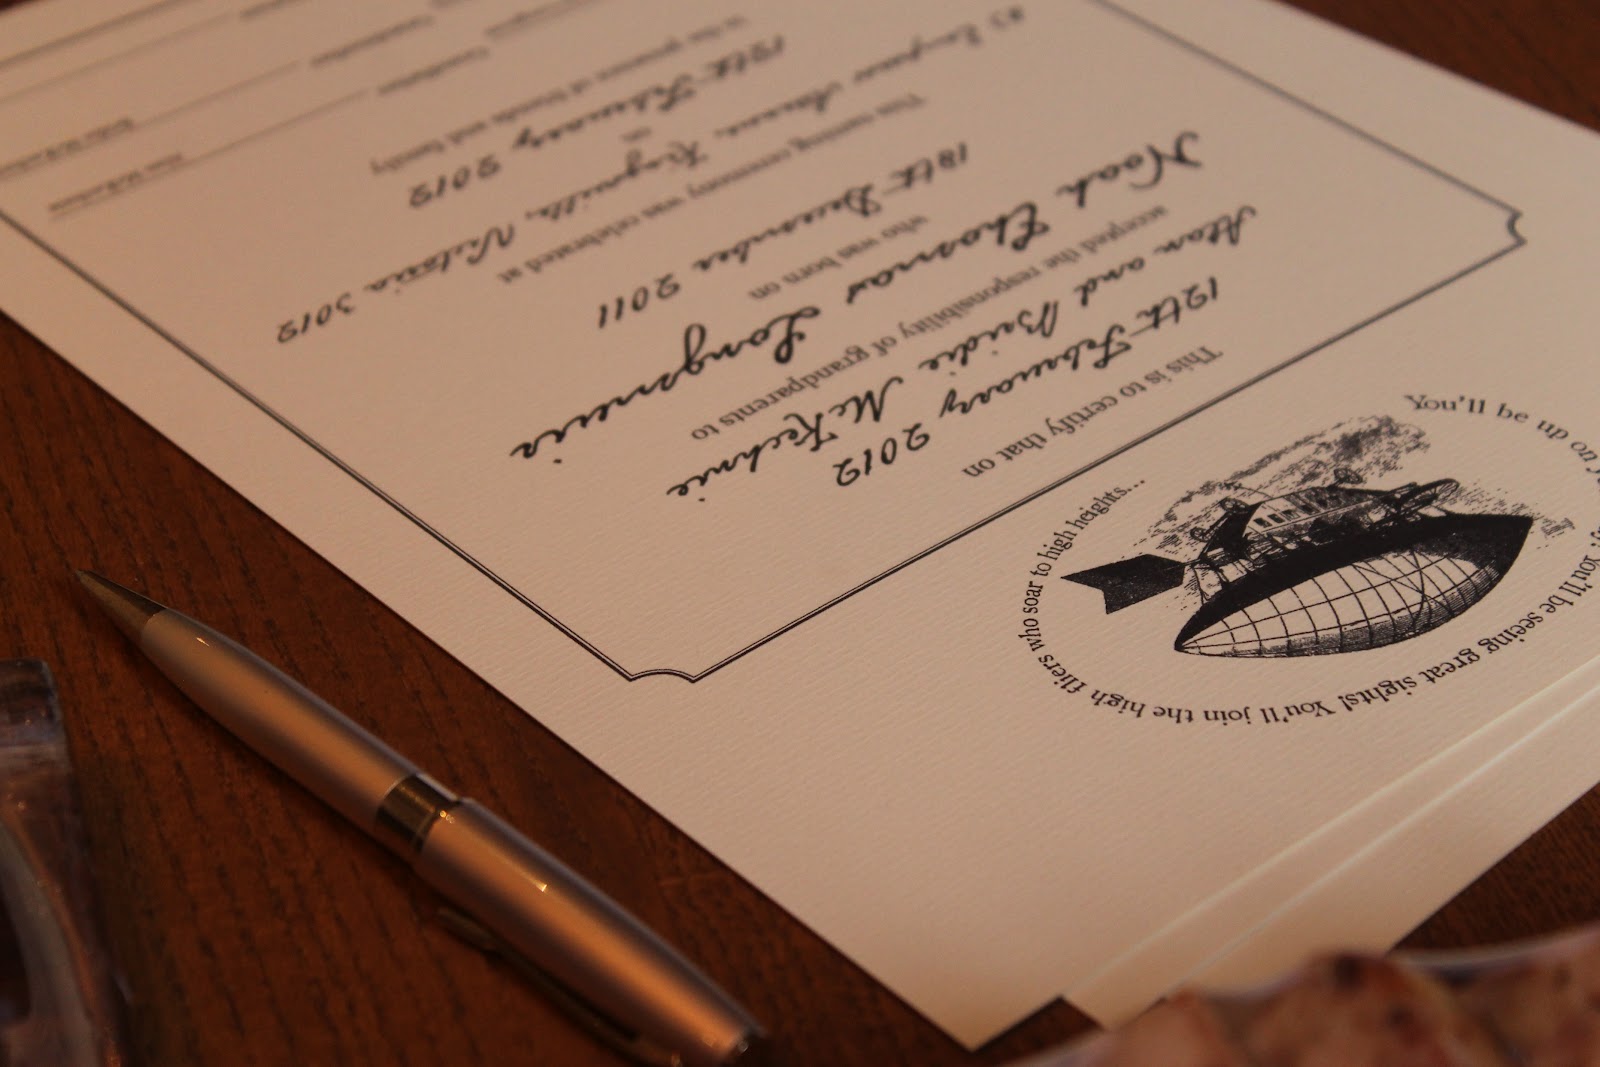 You'll be up on
You'll be seeing great sights! You'll join the high fliers who soar to high heights...
This is to certify that on
12th February 2012
Alan and Bridie McKechnie
accepted the responsibility of grandparents to
Noah Thomas Longmuir
who was born on
18th December 2011
This naming ceremony was celebrated at
83 Empress Avenue, Kingsville, Victoria 3012
on
12th February 2012
in the presence of friends and family